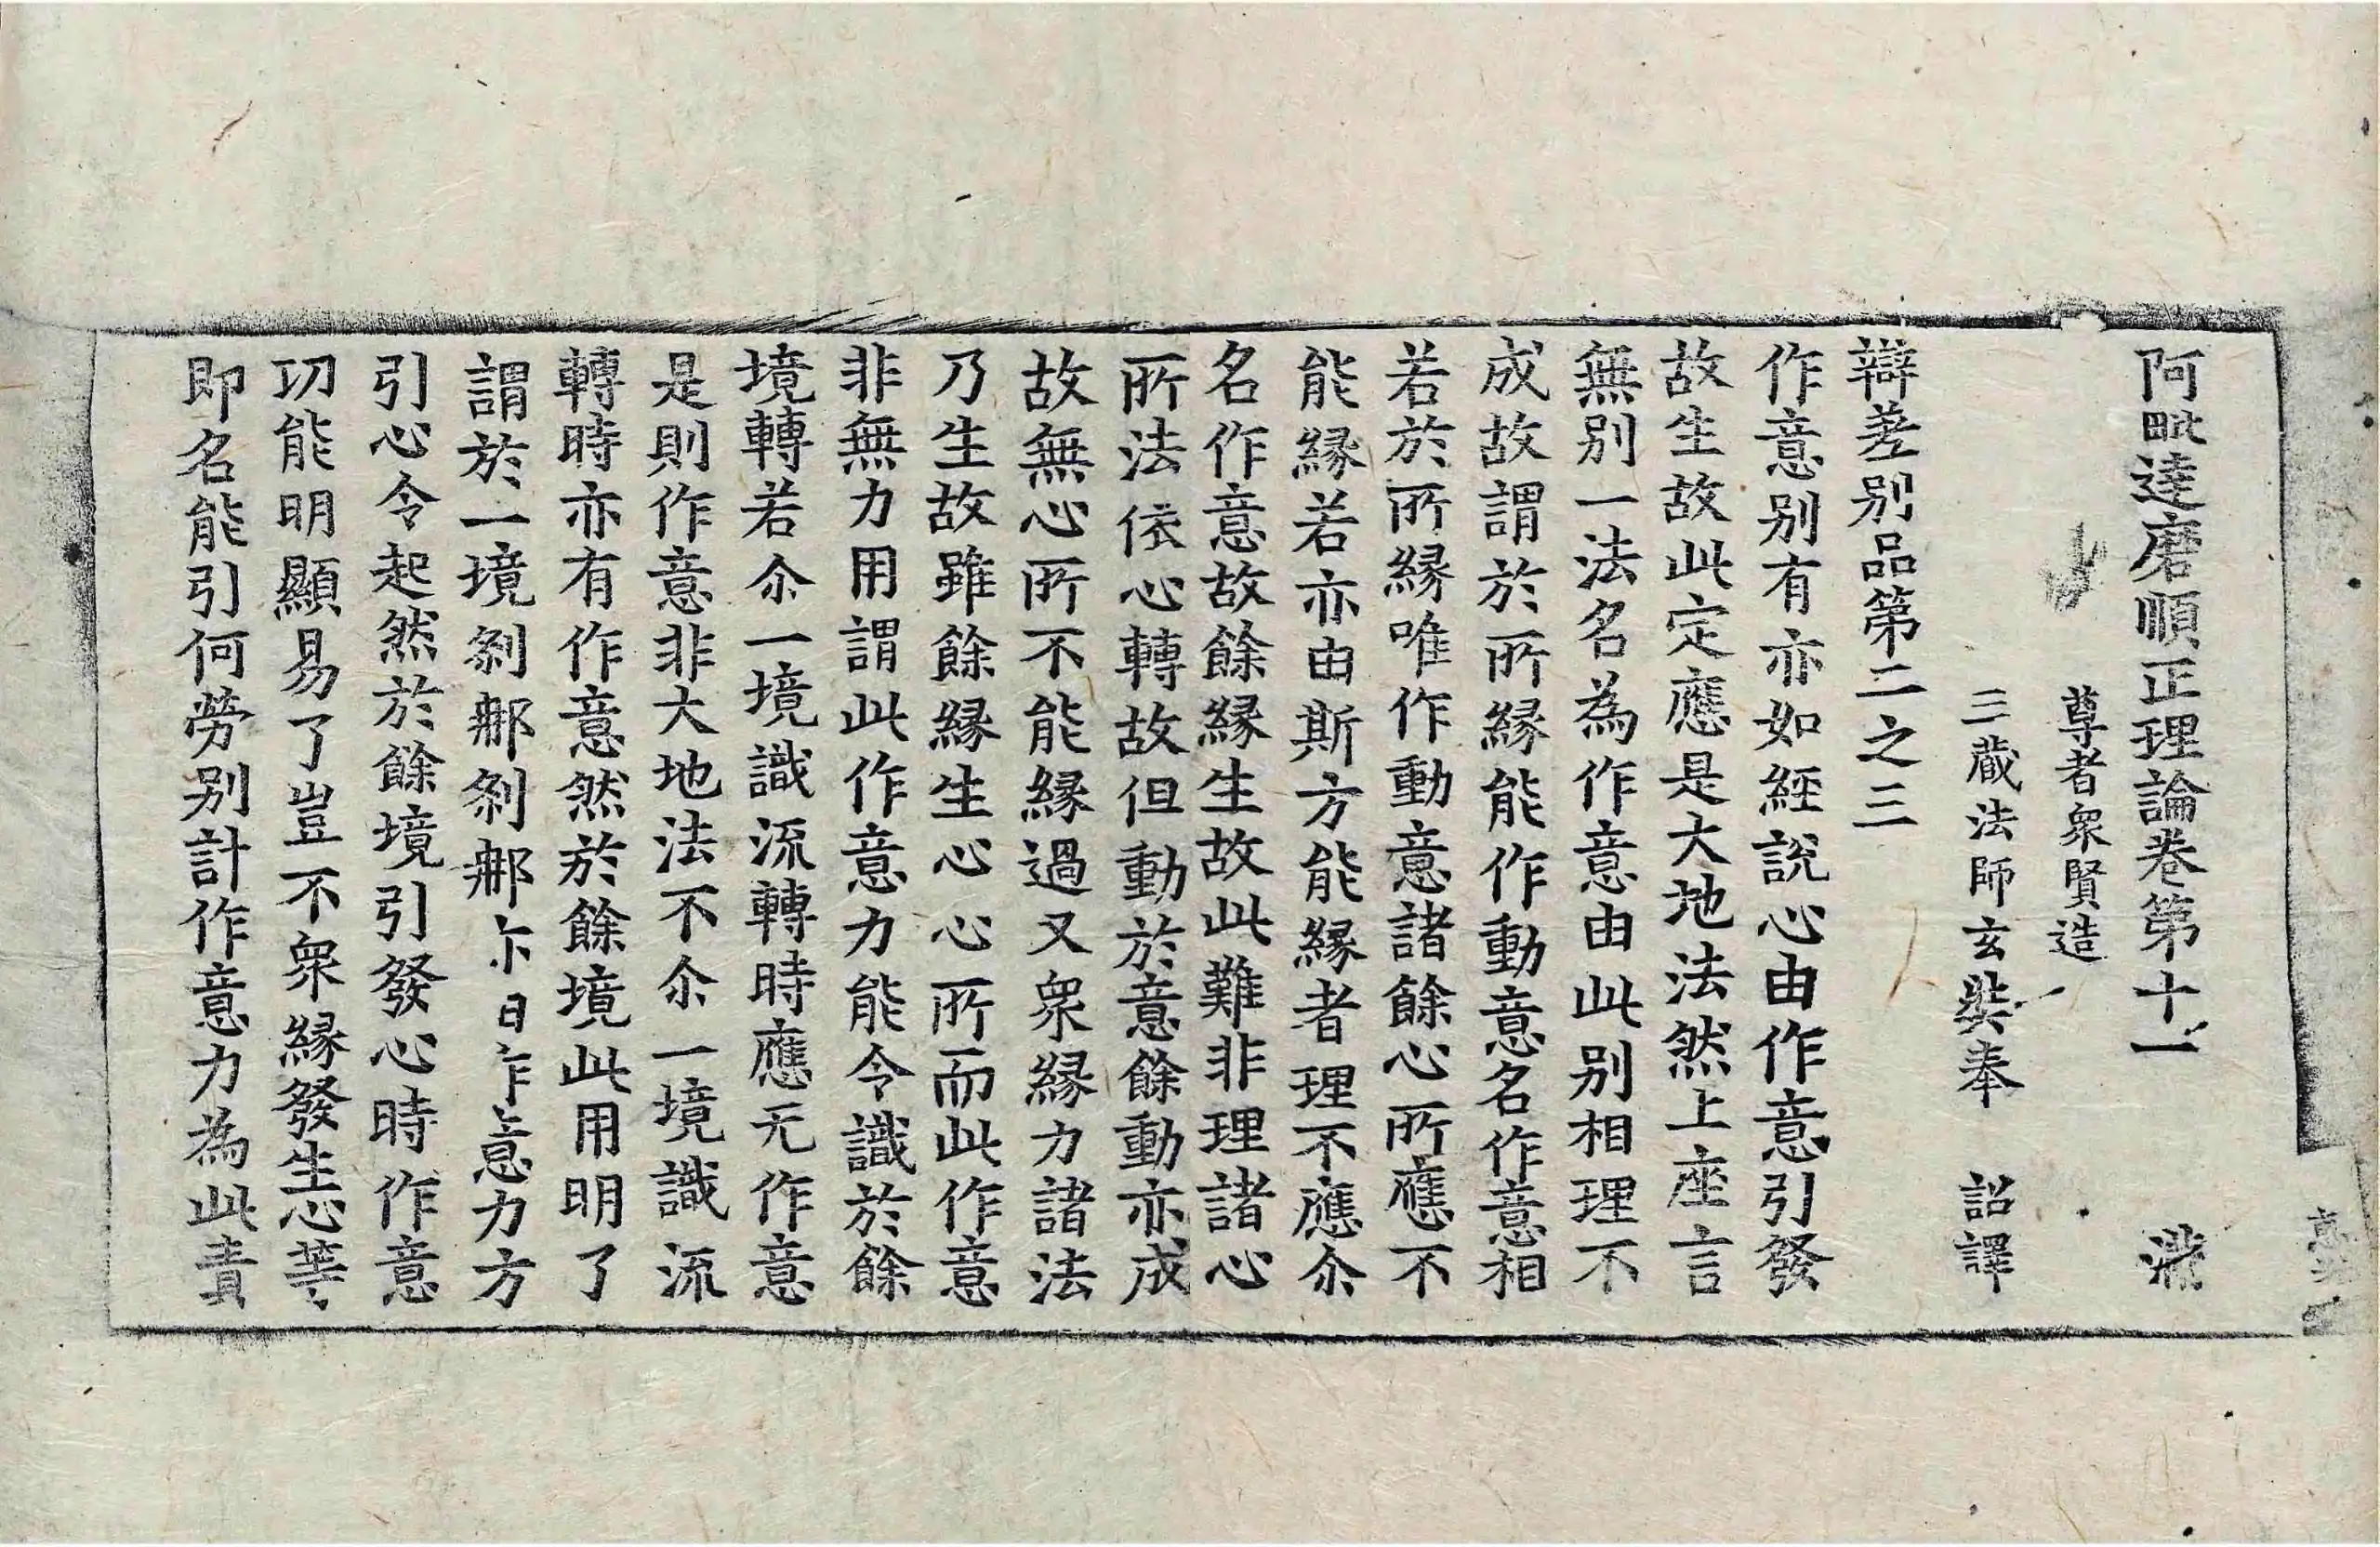 阿毗達磨順正理論卷第十一
尊者衆賢造
三藏法師玄奘奉 詔譯
辯差別品第二之三
作意別有亦如經說心由作意引發
故生故此定應是大地法然上座言
無別一法名為作意由此別相理不
成故謂於所縁能作動意名作意相
若於所縁唯作動意諸餘心所應不
能縁若亦由斯方能縁者理不應尒
名作意故餘縁生故此難非理諸心
所法依心轉故但動於意餘動亦成
故無心所不能縁過又衆縁力諸法
乃生故雖餘縁生心心所而此作意
非無力用謂此作意力能令識於餘
境轉若尒一境識流轉時應无作意
是則作意非大地法不尒一境識流
轉時亦有作意然於餘境此用明了
謂於一境剎那剎那亦由作意力方
引心令起然於餘境引發心時作意
功能明顯易了豈不衆縁發生心等
即名能引何勞別計作意力為此責